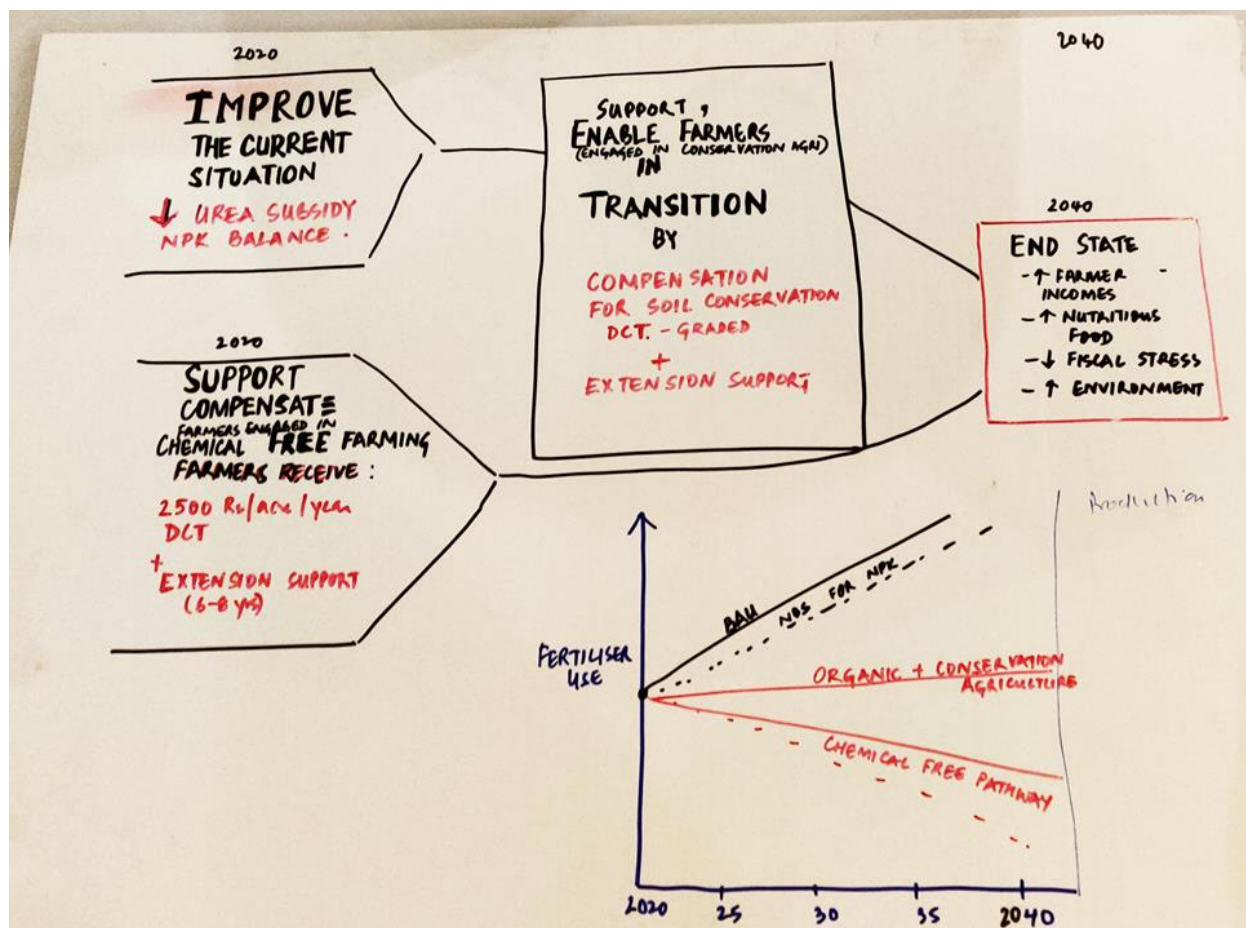 2020
IMPROVE
THE CURRENT
SITUATION
↓ UREA SUBSIDY
NPK BALANCE.
2020
SUPPORT
COMPENSATE
FARMERS ENGAGED IN
CHEMICAL FREE FARMING
FARMERS RECEIVE:
2500 Rs/acre/year
DCT
+
EXTENSION SUPPORT
(6-8 yrs)
SUPPORT,
ENABLE FARMERS
(ENGAGED IN CONSERVATION AGRI)
IN
TRANSITION
BY
COMPENSATION
FOR SOIL CONSERVATION
DCT. - GRADED
+
EXTENSION SUPPORT
2040
2040
END STATE
- ↑ FARMER
INCOMES
- ↑ NUTRITIOUS
FOOD
- ↓ FISCAL STRESS
- ↑ ENVIRONMENT
Production
FERTILISER
USE
BAU
NBS FOR NPK
ORGANIC + CONSERVATION
AGRICULTURE
CHEMICAL FREE PATHWAY
2020 25 30 35 2040